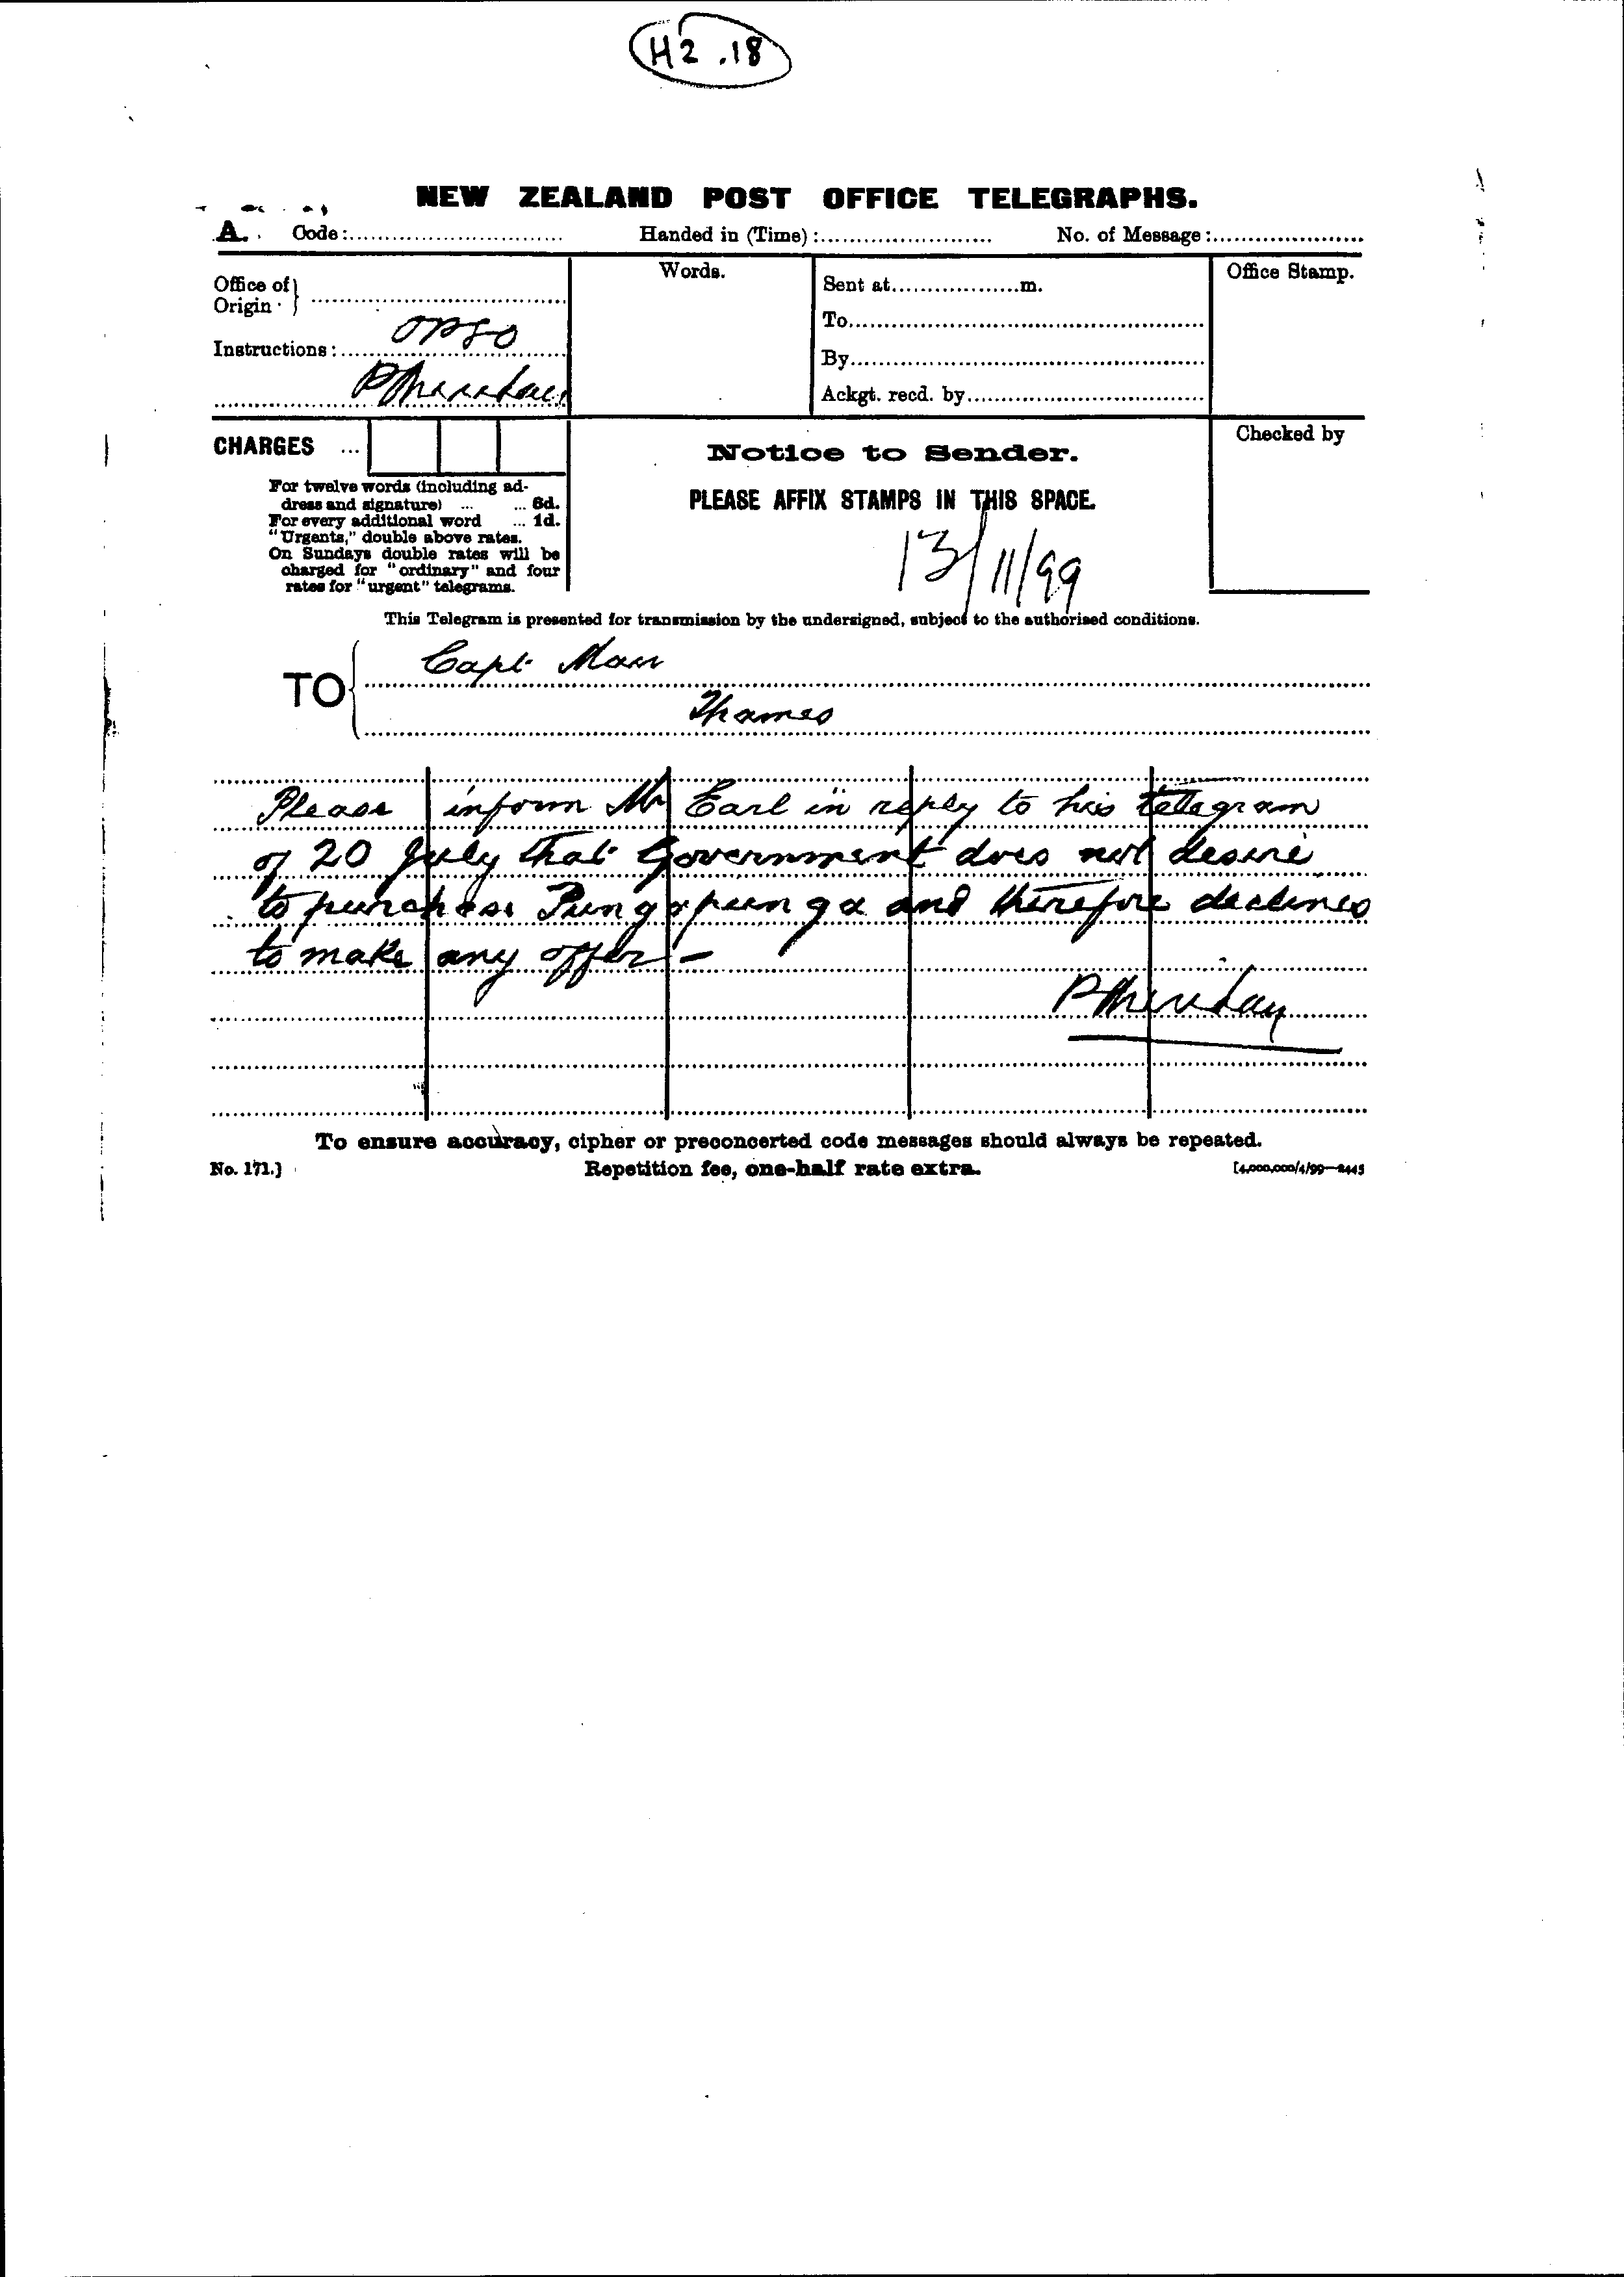 H2.18
NEW ZEALAND POST OFFICE TELEGRAPHS.
A. Code:........................... Handed in (Time) :........................ No. of Message :.....................
Office of
Origin
Words.
Sent at..................m.
Office Stamp.
To..................................................
Instructions :
By..................................................
Ackgt. recd. by.................................
CHARGES ...
Notice to Sender.
Checked by
For twelve words (including ad-
dress and signature) ... ... 6d.
For every additional word ... 1d.
"Urgents," double above rates.
On Sundays double rates will be
charged for "ordinary" and four
rates for "urgent" telegrams.
PLEASE AFFIX STAMPS IN THIS SPACE.
13/11/99
This Telegram is presented for transmission by the undersigned, subject to the authorised conditions.
TO Capt. Mair
Thames
Please inform Mr Earl in reply to his telegram
of 20 July that Government does not desire
to purchase Pungapunga and therefore declines
to make any offer –
P Sheridan
To ensure accuracy, cipher or preconcerted code messages should always be repeated.
No. 171.] Repetition fee, one-half rate extra. [4,000,000/4/99—2445